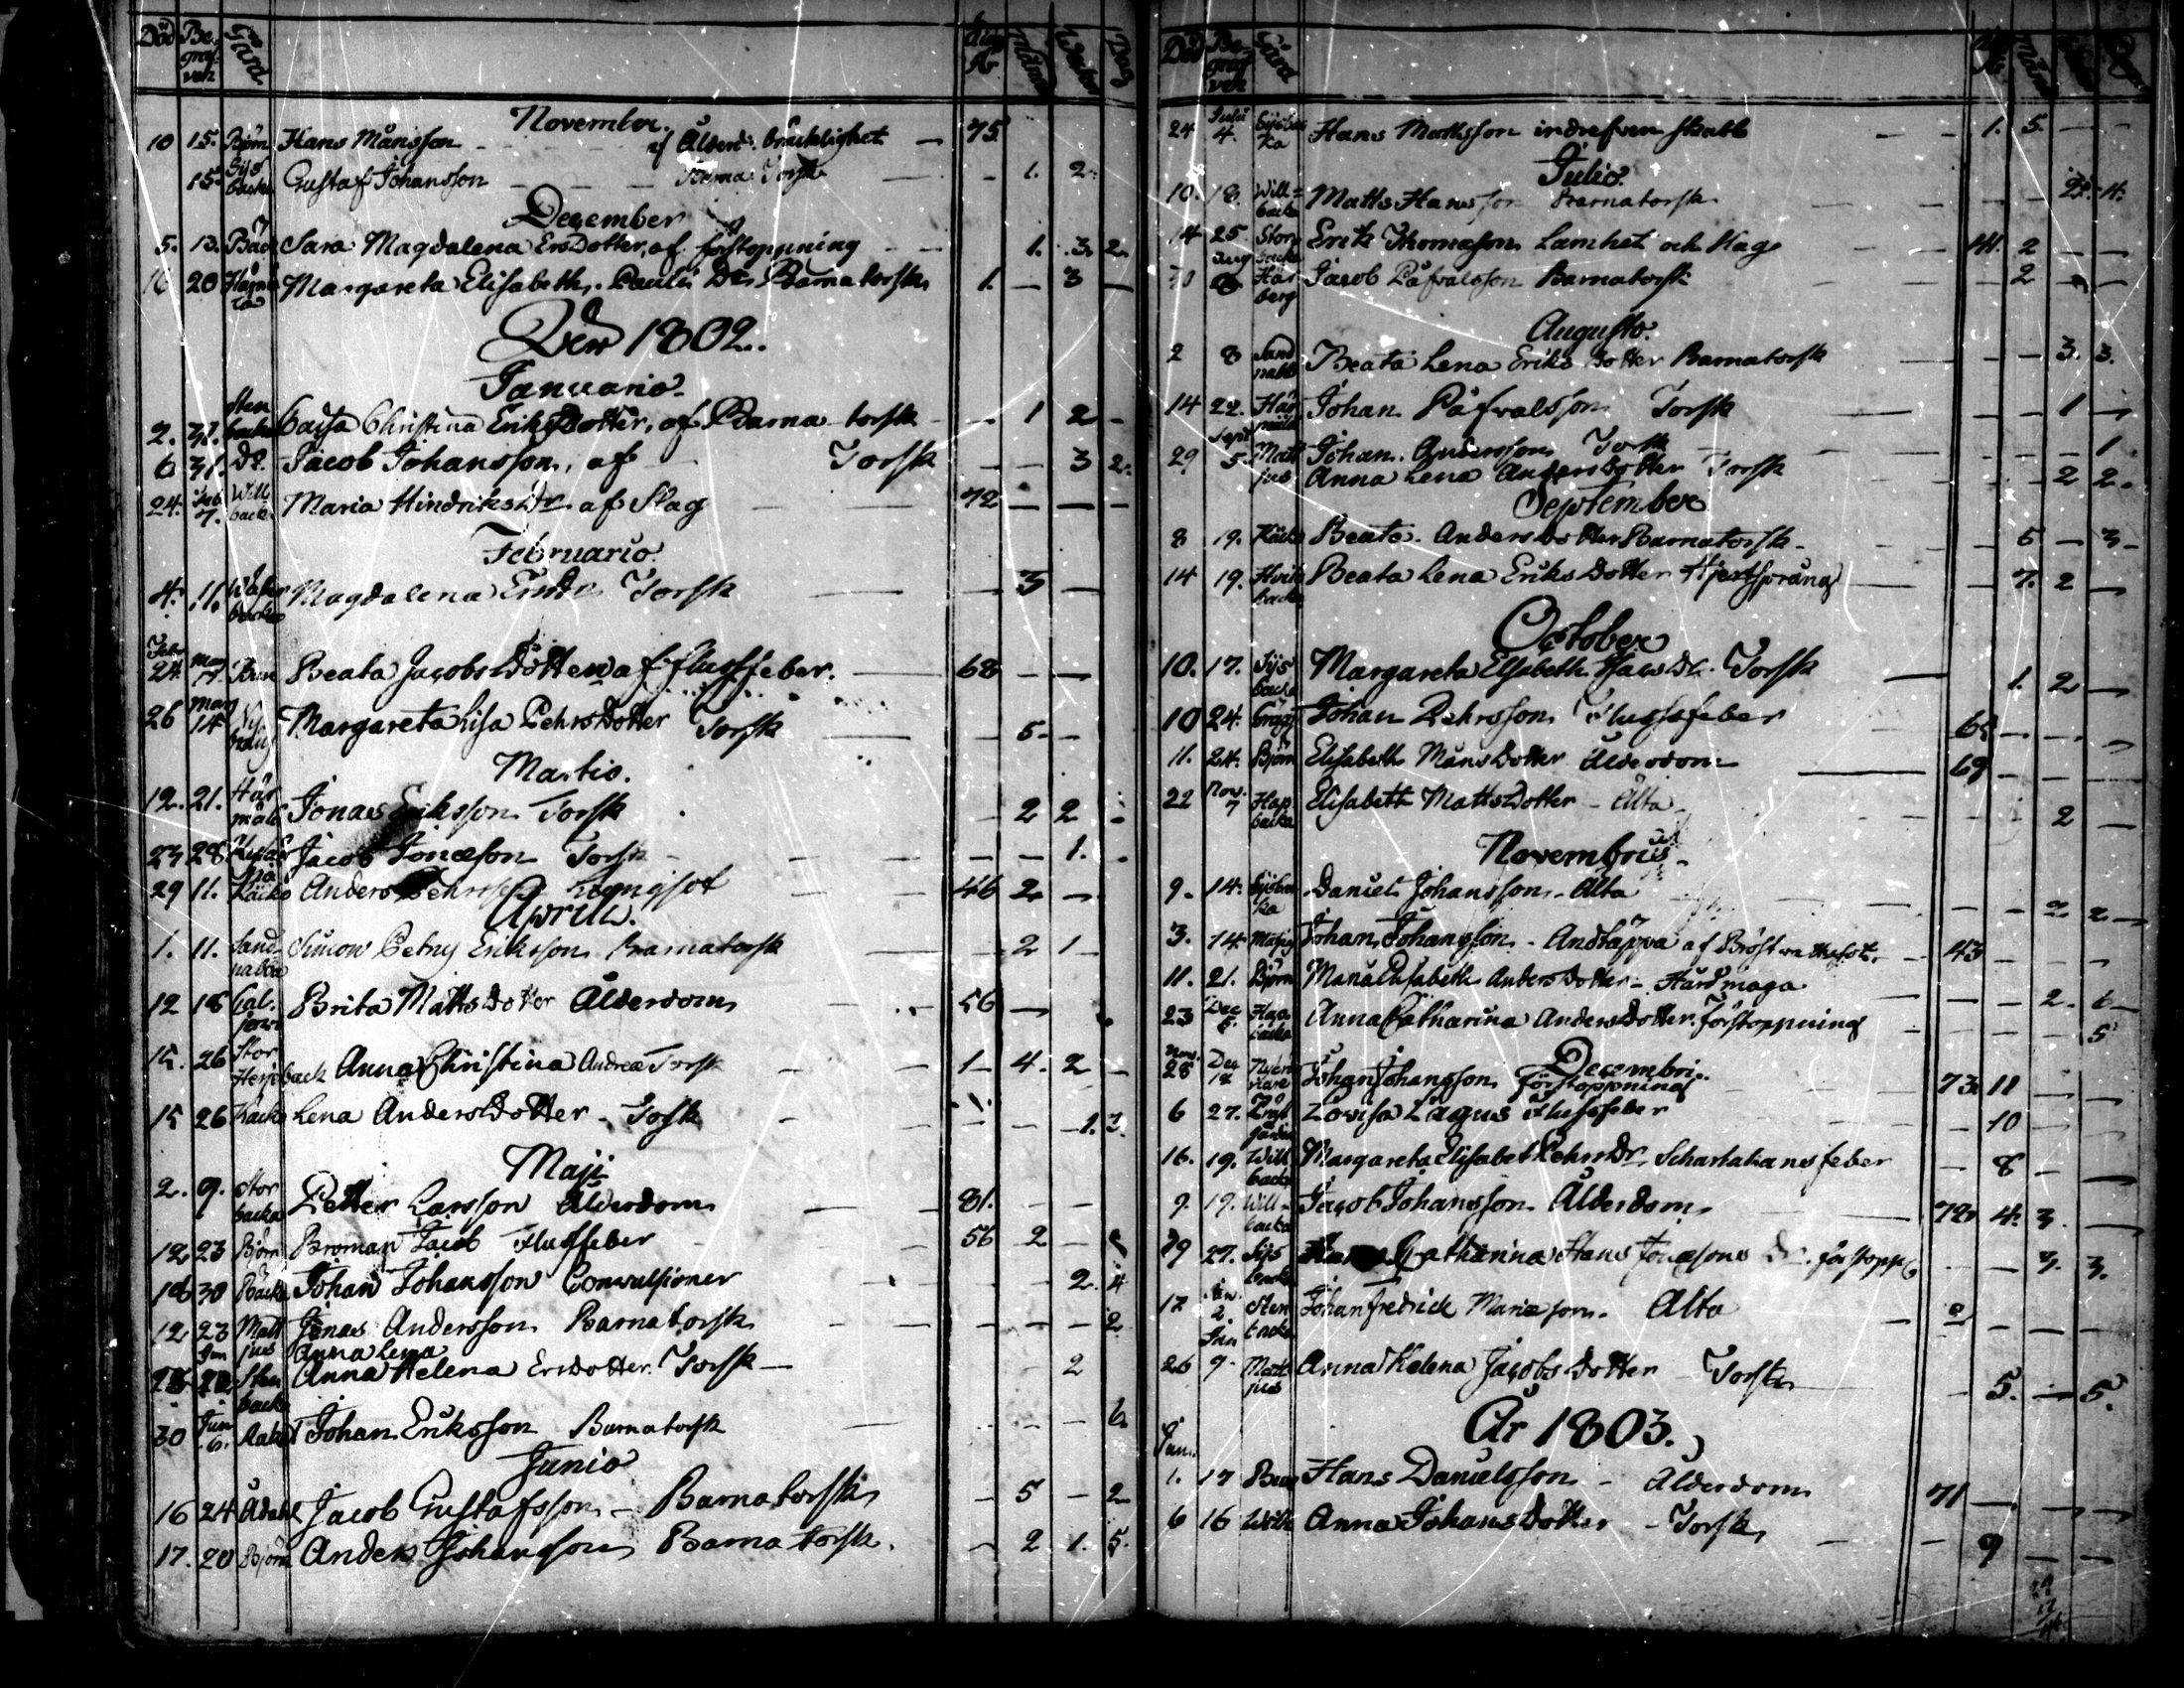 Död Be- graf- ven Gård Ålder År Månad Wecka Dag
November.
10 15. Björn Hans Månsson - af Ålderd. bräcklighet — 75
15. Sys backa Gustaf Johansson — — Barna Torsk — - 1. 2.
December
5. 13. Back Sara Magdalena ErsDotter, af förstoppning - - 1. 3. 2.
16 20 Margareta Elisabeth, Pauli Dr Barnatorsk 1. — 3 —
Den 1802.
Januario.
2. 31. Sten backa Caisa Christina EriksDotter, af Barna torsk - — 1 2 -
6 31. Do. Jacob Johansson, af — Torsk — — 3 2.
24. Feb 7. Will back. Maria Hindriks Dr af Slag — — 72 — — —
Februario.
4. 11. Magdalena ErsDr Torsk — — 3 —
Febr 24. Mars 7. Bure Beata JacobsDotter af flussfeber. — 68 — —
26 Mars 14 Ny Margareta Lisa PehrsDotter Torsk — — 5. —
Martio.
12. 21. Här mäla Jonas Eriksson Torsk — 2 2 -
23 28 Jacob Jonæson Torsk - — — — 1. -
29 11. Käcko Anders Pehrsson Lungsot — — 46 2 —
Aprill.
1. 11. Sand nabba Simon Petny Eriksson Barnatorsk — — 2 1 —
12 18 Cal- Brita MattsDotter Ålderdom — 56 —
15. 26 Stor Herje back Anna Christina Andreæ Torsk — — 1 — 4. 2 —
15 26 Käcko Lena AndersDotter - Torsk - — — 1. 3.
Maji
2. 9. Stor backa Petter Larsson Ålderdom — 81. — —
12 23 Björn Broman Jacob Flussfeber — 56 2 —
18 30 Backa Johan Johansson Convulsioner - — 2. 4
12 23 Matt jus Jonas Andersson Barnatorsk — — — — 2
Jun Anna Lena
Sten backa Anna Helena ErsDotter. Torsk — — 2
30 Jun 6. Johan Eriksson Barnatorsk — — 6.
Junio
16 24 Ådahl Jacob Gustafsson - Barnatorsk - 5 — 2
17. 20 Björn Anders Johansson Barnatorsk. - 2 1. 5.
Död Be- graf- ven Gård
24 Julii 4. Sysbac ka Hans Mattsson indrefven skabb — - 1. 5. — —
Julio.
10. 18. Will- backa Matts Hansson Barnatorsk — — 2. 4.
14 25 Stor backa Erik Thomæson Lamhet och Slag — 2 — —
30 Aug Här berg Jacob Påfvalsson Barnatorsk — 2 — —
Augusto.
2 8 Sand nabb Beata Lena Eriks Dotter Barnatorsk — — 3. 3.
14 22. Här mäla Johan Påfvalsson Torsk — — 1 —
29 Sept 5. Matt jus Johan Andersson Torsk — — — 1
Anna Lena AndersDotter Torsk — — 2 2.
September
8 19. Käcko Beata AndersDotter Barnatorsk - — 5 — 3 -
14 19. Hvit backa Beata Lena EriksDotter Hjertsprång — 7. 2 —
October
10. 17. Sys backa Margareta Elisabeth Hans Dr. Torsk — 1. 2 —
10 24. Johan Pehrsson Flussfeber — — —
11. 24. Björn Elisabeth MånsDotter Ålderdom — 69 — — —
22 Nov. 7 Hag backa Elisabeth MattsDotter - Älta — 2 —
Novembris
9. 14. Sysbac ka Daniel Johansson - Älta — — 2 2 —
3. 14. Johan Johansson - Andtäppa af Bröst — 43 — — —
11. 21. Björn Maria Elisabeth AndersDotter - Hårdmaga — — 2. 6 —
23 Dec 5. Hag backa Anna Catharina AndersDotter. Förstoppning — — 5
Decembri.
Nov. 28 Dec 12 Johan Johansson Förstoppning 73. 11 — —
6 27. Lovisa Lagus Flussfeber — 10 — —
16. 19. Will backa Margareta Elisabet Pehrs Dr. Scharlakansfeber — 8 — —
9. 19. Will- backa Jacob Johansson Ålderdom — 72. 4. 3. —
19 27. Sys backa Catharina Hans Jonæsons Dr. förstoppg — — 3. 3.
17 Jan. 2. Sten backa Johan Fredrick Mariæson. Älta — — —
26 Jan 9. Matt jus Anna Helena JacobsDotter - Torsk — 5. — 5.
År 1803.
Jan.
1. 17 Bure Hans Danielsson - Ålderdom 71 — — —
6 16 Anna JohansDotter - Torsk — 9 — —